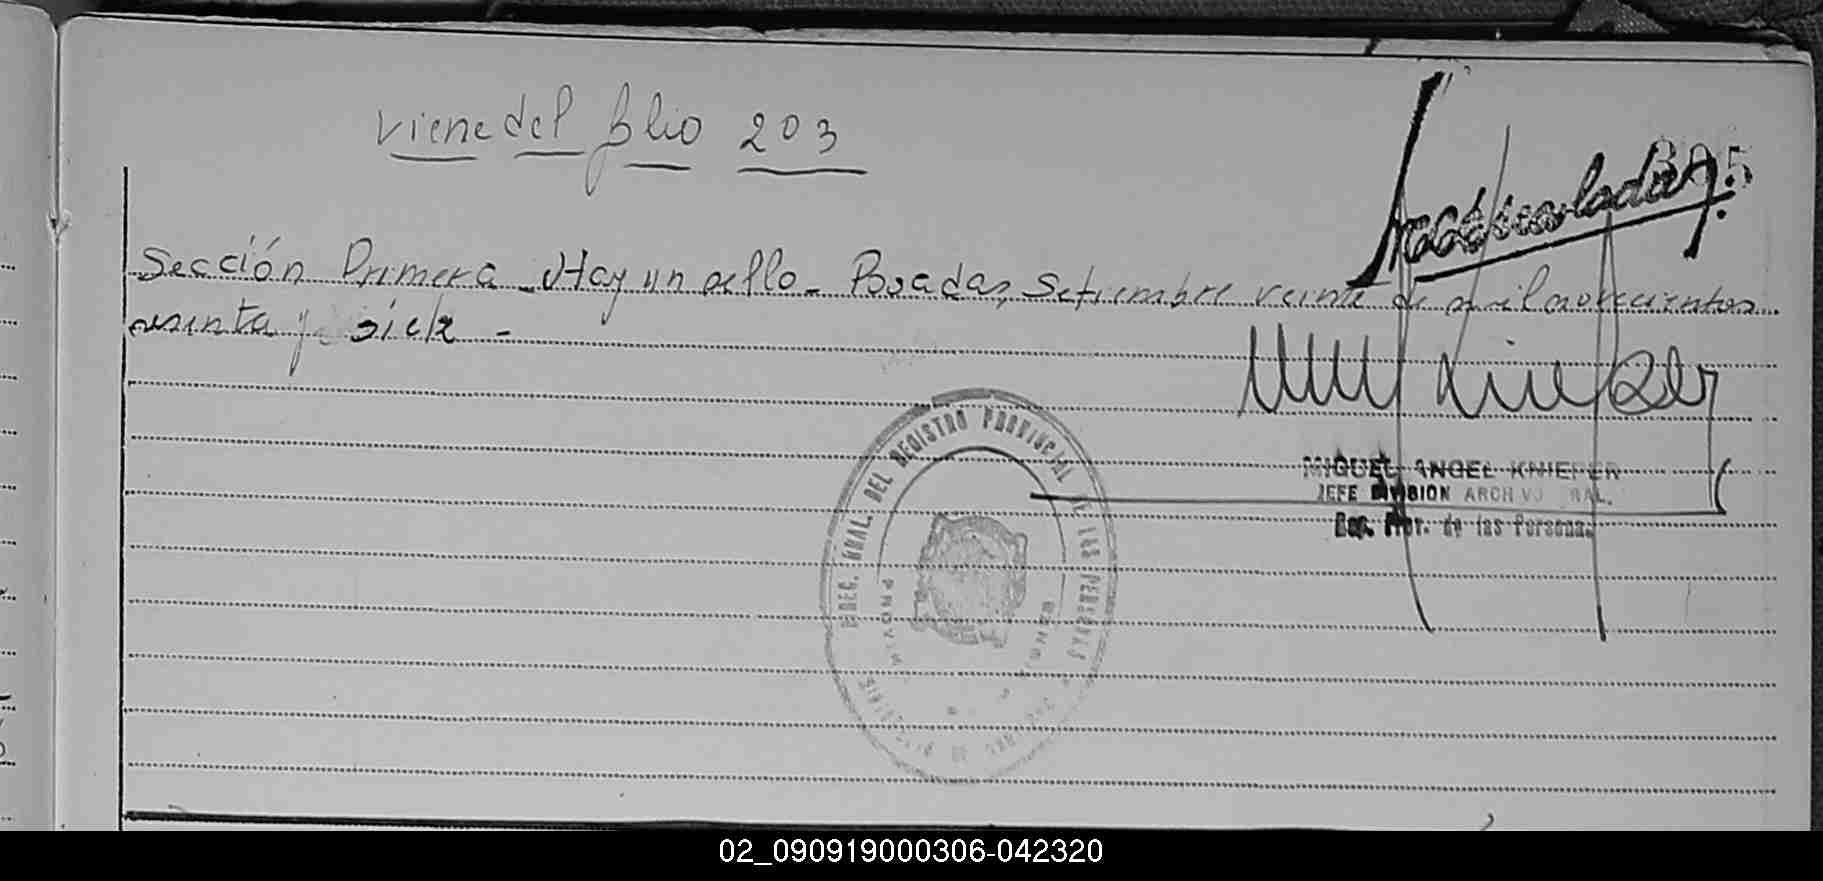 viene del folio 203
Sección Primera - Hay un sello - Posadas, Setiembre veinte de mil novecientos
sesenta y siete -
MIGUEL ANGEL KNIEPER
JEFE DIVISION ARCH
Prov. de las Persona
DIREC. GRAL. DEL REGISTRO PROVINCIAL DE LAS PERSONAS
02_090919000306-042320